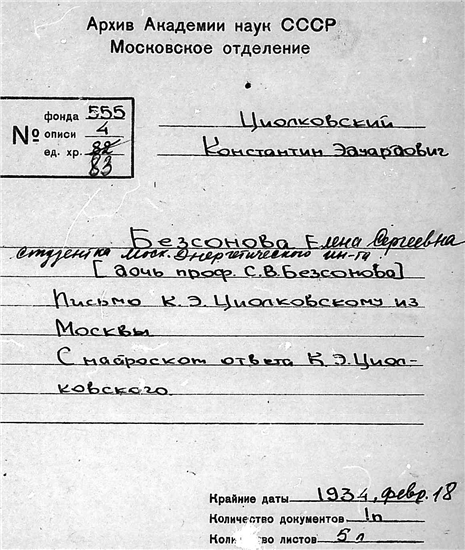 Архив Академии наук СССР
Московское отделение
фонда 555
№ описи 4
ед. хр. 82
83
Циолковский
Константин Эдуардович
Безсонова Елена Сергеевна
студентка Моск. Энергетического ин-та
[дочь проф. С.В. Безсонова]
Письмо К.Э. Циолковскому из
Москвы
С наброском ответа К.Э. Циол-
ковского
Крайние даты 1934, февр. 18
Количество документов 1п
Количество листов 5 л